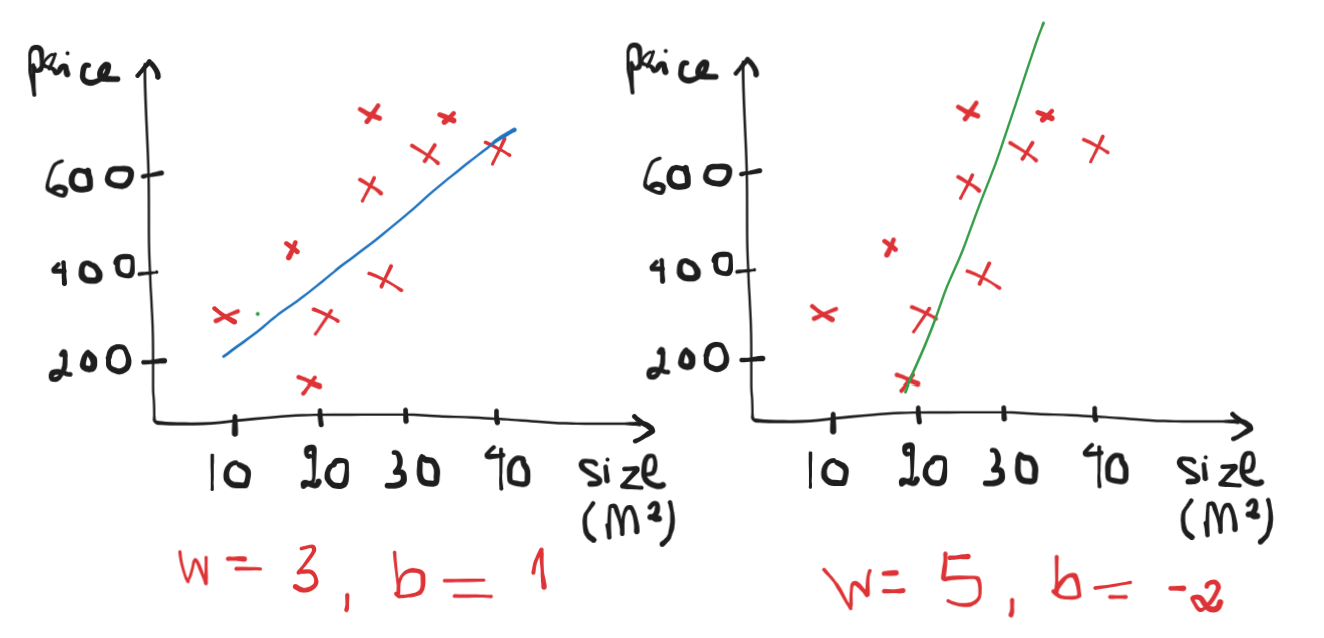 Price
600
400
200
10 20 30 40 size
(M²)
w = 3, b = 1
Price
600
400
200
10 20 30 40 size
(M²)
w = 5, b = -2